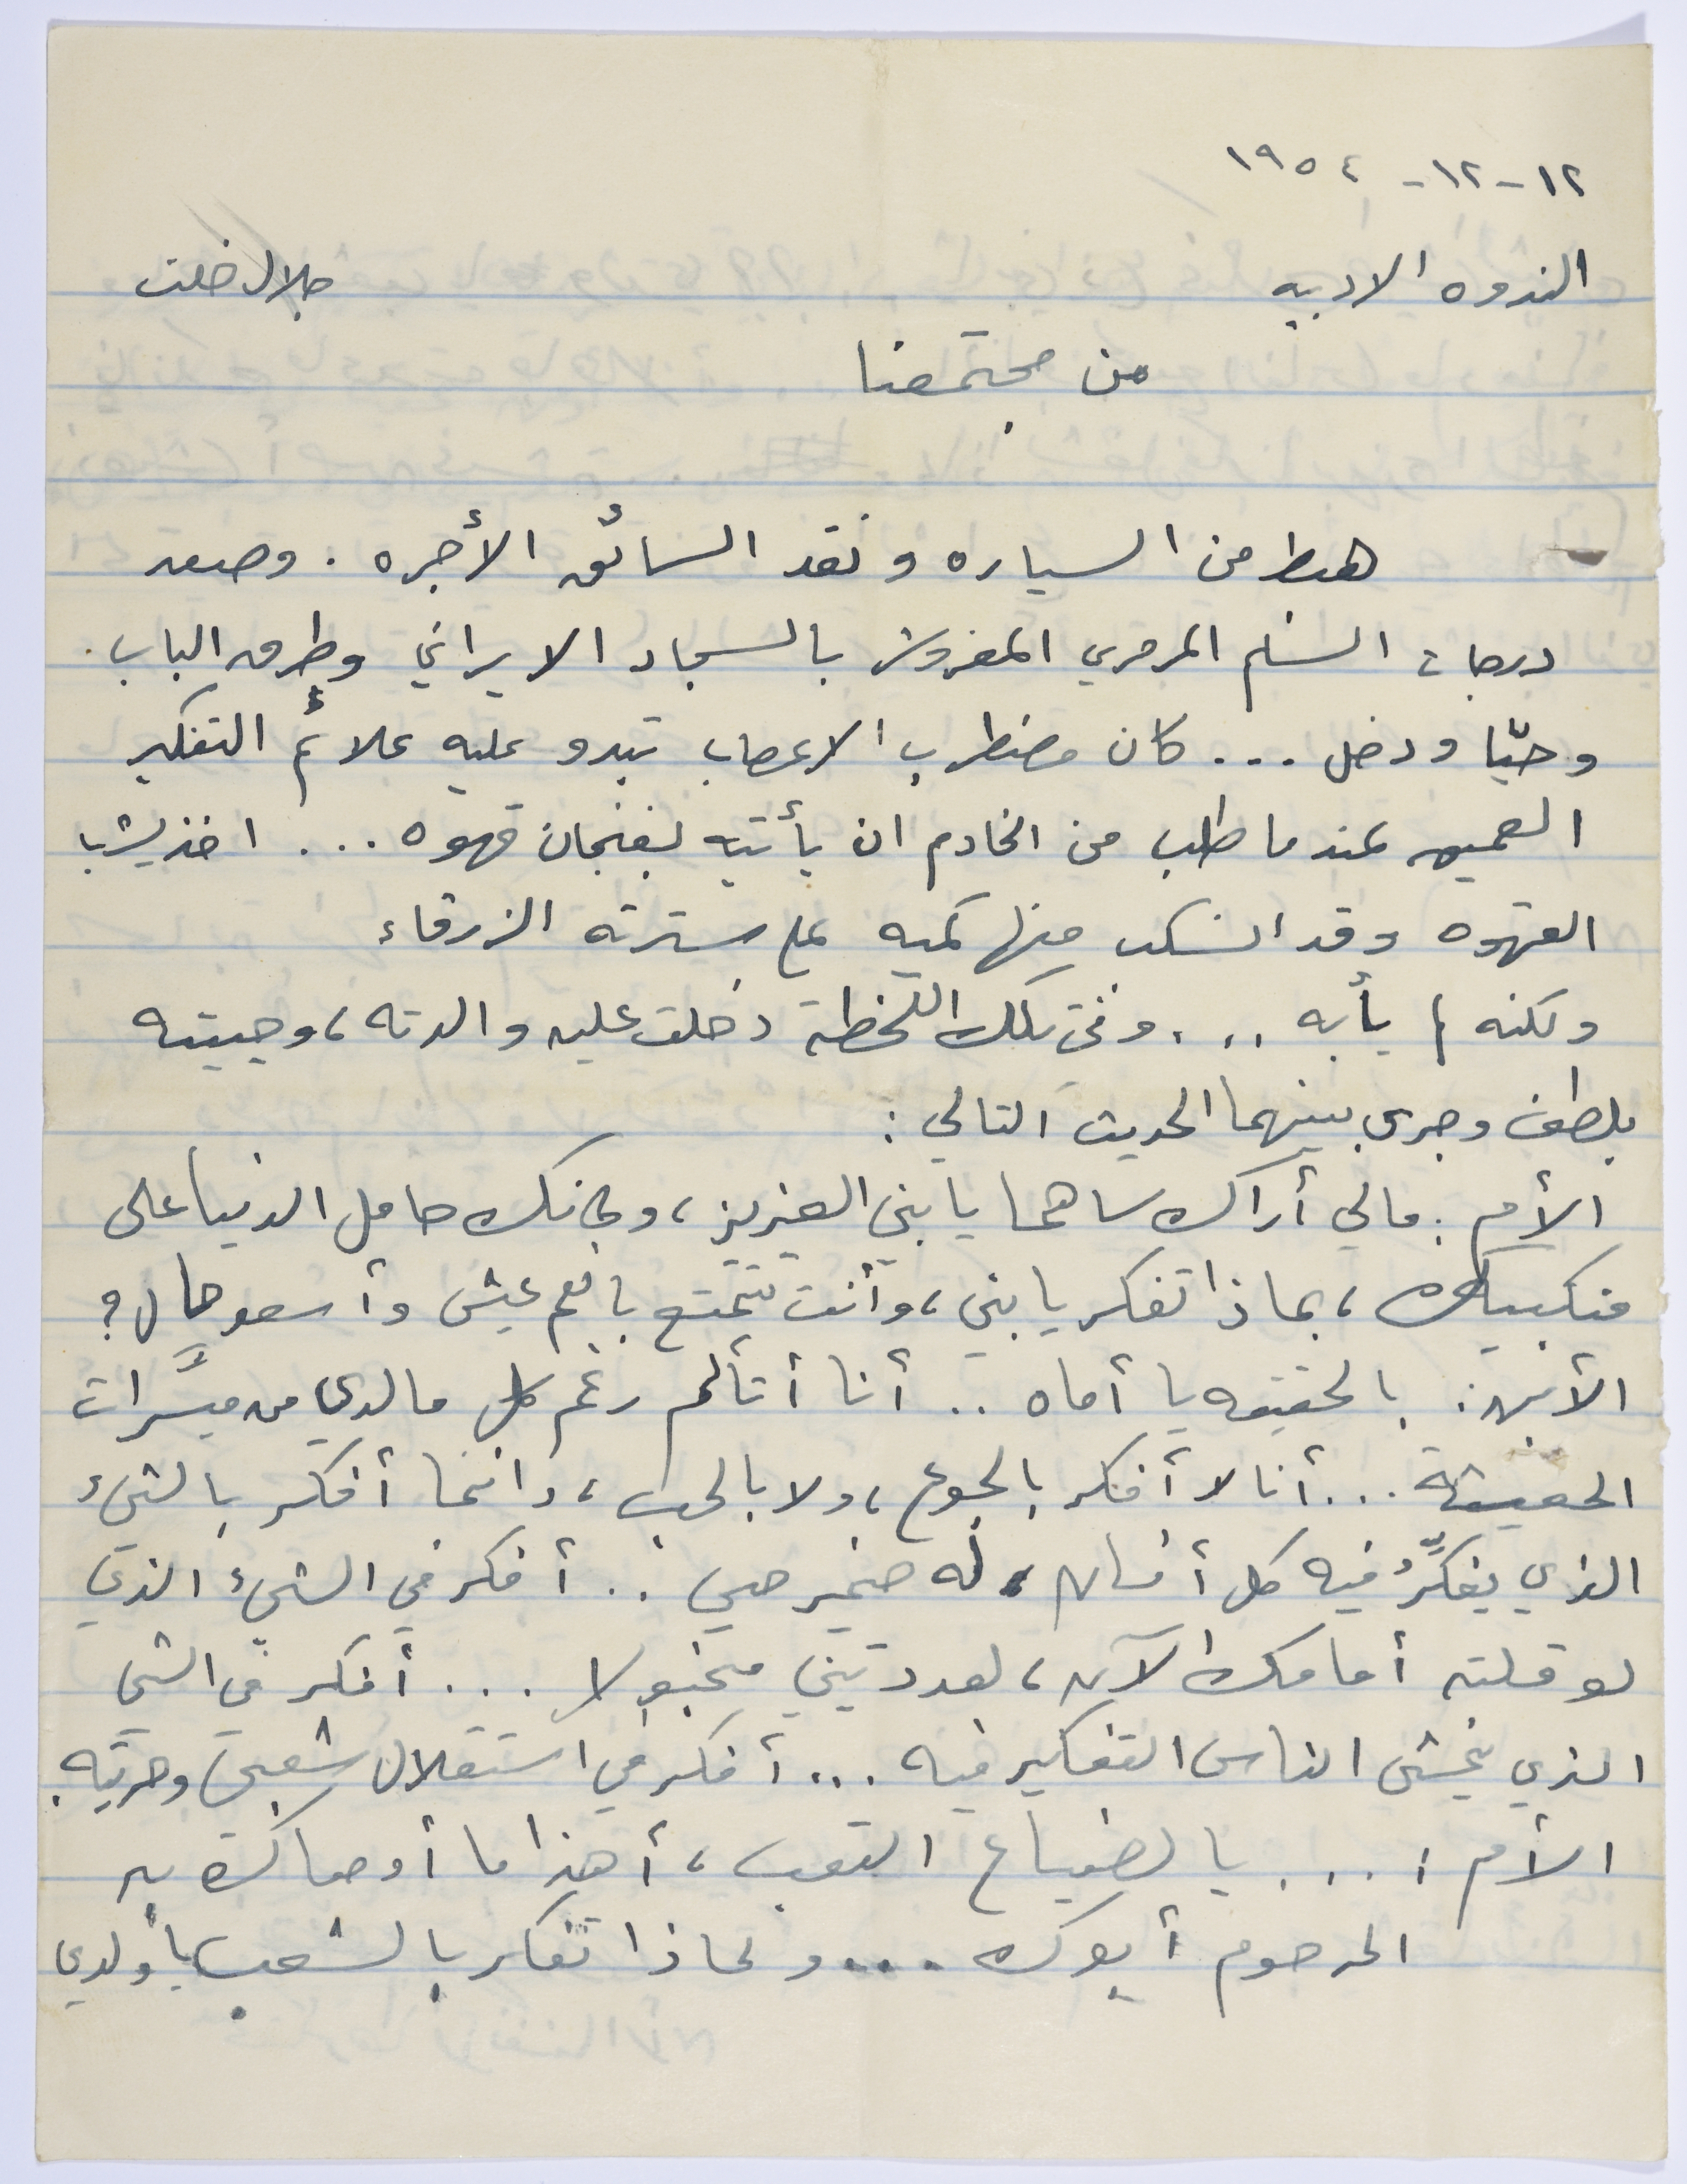 ١٢-١٢-١٩٥٤
الندوه الادبيه
جلال خلف
من مجتمعنا
هبط من السياره ونقد السائق الأجره . وصعد
درجات السلم المرمري المفروش بالسجاد الايراني وطرق الباب .
وحيّا ودخل ... كان مضطرب الاعصاب تبدو عليه علائم التفكير
العميق عندما طلب من الخادم ان يأتيه بفنجان قهوه ... اخذ يشرب
القهوه وقد انسكب منها كميه على سترته الزرقاء
ولكنه لم يأبه ... وفي تلك اللحظة دخلت عليه والدته ، وحييته
بلطف وجرى بينهما الحديث التالي :
الأم : مالي أراك ساهما يا بني العزيز ، وكانك حامل الدنيا على
منكبيك ، بماذا تفكر يا بني ، وأنت تتمتع بانعم عيش وأسعد حال ؟
الأبن : بالحقيقه يا أماه .. أنا أتألم رغم كل ما لدي من ميسَّرات
المعيشة ... أنا لا أفكر بالجوع ، ولا بالحب ، وانما أفكر بالشيء
الذي يفكِّر فيه كل أنسان له ضمير حي .. أفكر في الشيء الذي
لو قلته أمامك الآن ، لعددتيني مخبولا ... أفكر في الشي
الذي يخشى الناس التفكير فيه ... أفكر في استقلال شعبي وحريته .
الأم : ... يا لضياع التعب ، أهذا ما أوصاك به
المرحوم أبوك ... ولماذا تفكر بالشعب يا ولدي